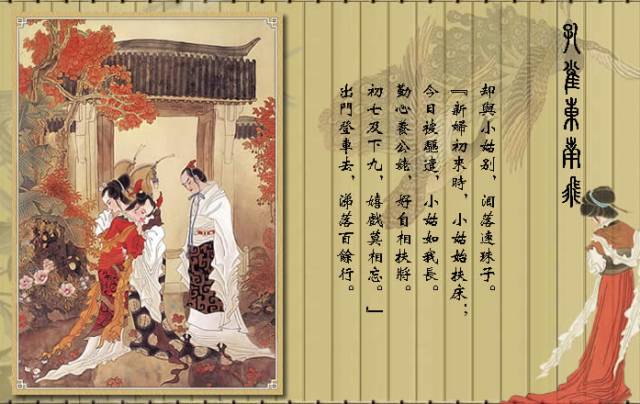 孔雀東南飛
却與小姑別，淚落連珠子。
『新婦初來時，小姑始扶床；
今日被驅遣，小姑如我長。
勤心養公姥，好自相扶將。
初七及下九，嬉戲莫相忘。』
出門登車去，涕落百餘行。